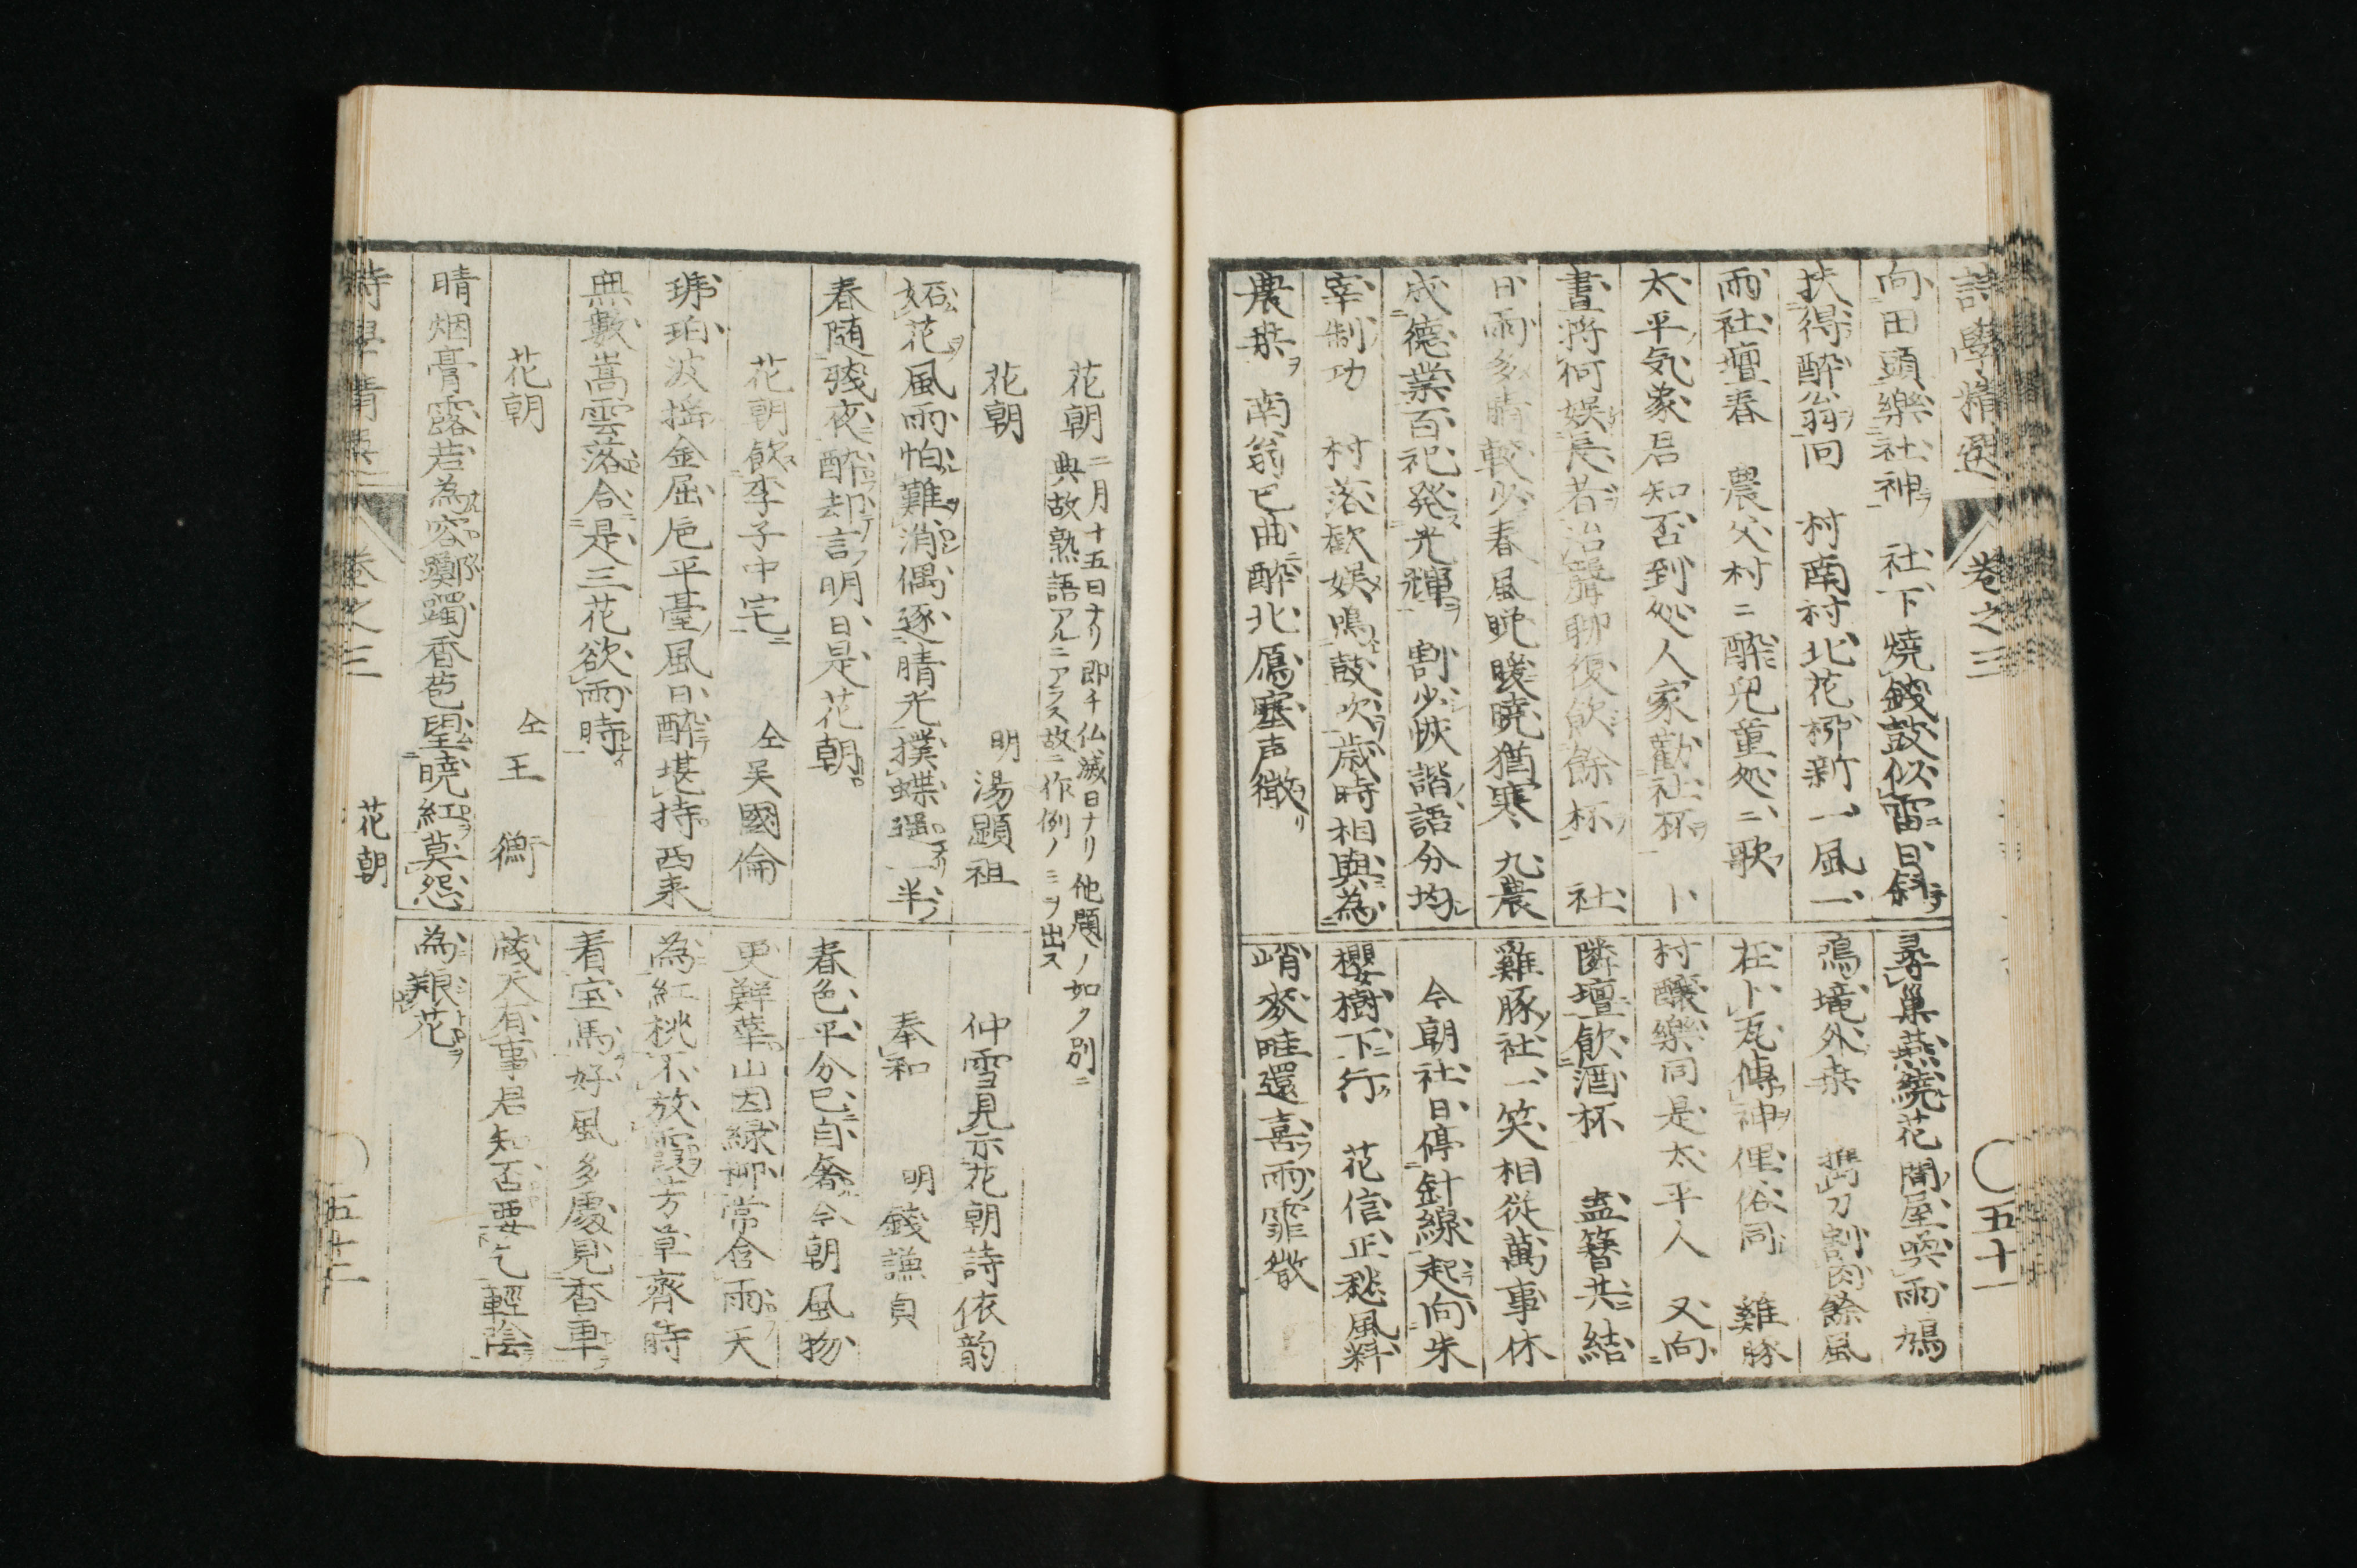 詩學精選
卷之三
五十一
向田頭樂社神　社下燒錢鼓似雷日斜
扶得醉翁回　村南村北花柳新一風一
雨社壇春　農父村ニ醉兒童処ニ歌
太平気象君知否到処人家勸社杯　卜
晝將何娯長者治聾聊復飲餘杯　社
日雨多晴較少春風晩暖曉猶寒　九農
成德業百祀発光輝　割少恢諧語分均
宰制功　村落歓娯鳴鼓吹歳時相與為
農桒　南翁巴曲醉北鴈塞声微
尋巢燕繞花間屋喚雨鳩
鳴壝外桒　攜刀割肉餘風
在卜瓦傳神俚俗同　雞豚
村釀樂同是太平人　又向
隣壇飲酒杯　盍簪共結
雞豚社一笑相從萬事休
今朝社日停針線起向朱
櫻樹下行　花信正愁風料
峭麥畦還喜雨霏微
花朝 二月十五日ナリ即チ仏滅日ナリ他題ノ如ク別ニ
典故熟語アルニアラス故ニ作例ノミヲ出ス
花朝　明 湯顕祖
妬花風雨怕難消偶逐晴光撲蝶遥一半
春随殘夜醉却言明日是花朝
花朝飲李子中宅　仝 吴國倫
琥珀波揺金屈巵平臺風日醉堪持西来
無數嵩雲落合是三花欲雨時
花朝　仝 王　衡
晴烟膏露若為容躑躅香苞望曉紅莫怨
仲雪見示花朝詩依韵
奉和　明 錢謙貞
春色平分已自奢今朝風物
更鮮華山因緑柳常含雨天
為紅桃不放霞芳草齊時
着宝馬好風多處見香車
蔵天有事君知否要乞輕陰
為艱花
詩學精選
卷之三
花朝
五十二